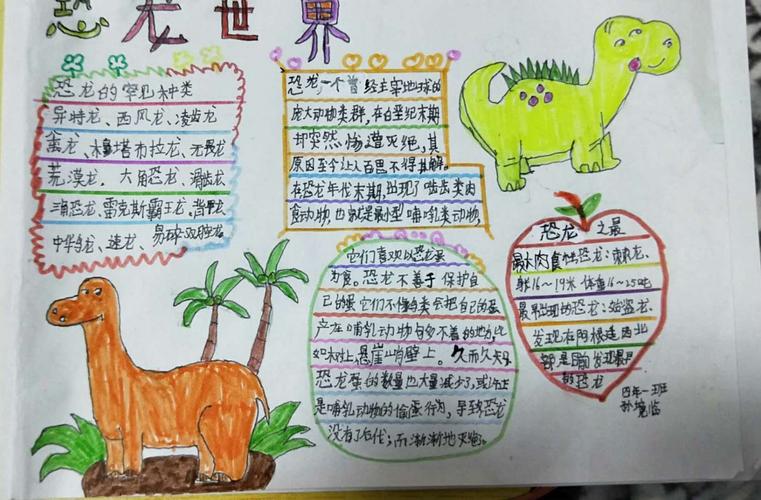 恐龙世界
恐龙的罕见种类
异特龙、西风龙、凌齿龙
蛋龙、木擎塔布拉龙、无畏龙
荒漠龙、六角恐龙、滑齿龙
三角恐龙、雷克斯霸王龙、
中华鸟龙、速龙、易碎双腔龙
恐龙,一个曾经主宰地球的
庞大动物类群,在白垩纪末期
却突然惨遭灭绝,其
原因至今让人百思不得其解。
在恐龙年代末期,出现了啮齿类肉
食动物,也就是最小型哺乳类动物,
它们喜欢以恐龙蛋
为食。恐龙不善于保护自
己的蛋它们不懂鸟类会把自己的蛋
产在哺乳动物句多不着的地方,比
如树上,悬崖山肖壁上。久而久之
恐龙蛋的数量也大量减少了,或许正
是哺乳动物的偷蛋行为,导致恐龙
没有了后代;而渐渐地灭绝。
恐龙之最
最大肉食性恐龙:棘龙、
身长16～19米 体重16～25吨
最早出现的恐龙:始盗龙、
发现在阿根廷西北
部是目前发现最早
的恐龙
四年一班
孙